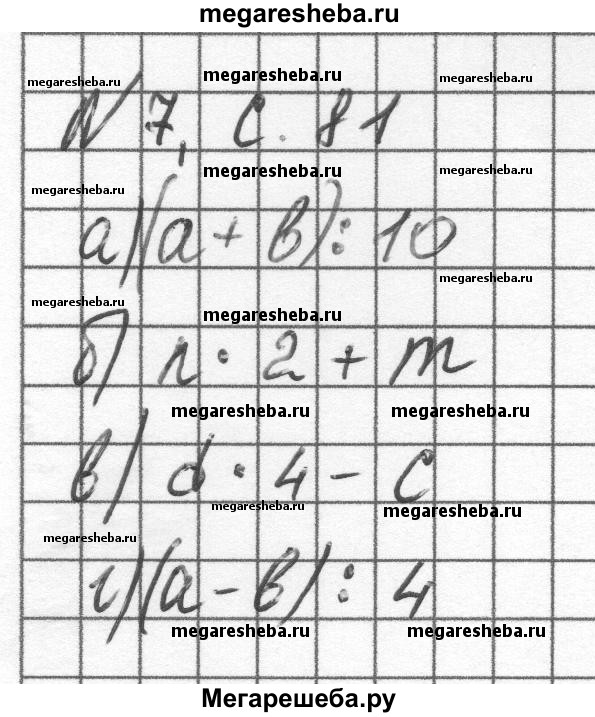 megaresheba.ru
megaresheba.ru megaresheba.ru megaresheba.ru
N 7, с. 81
megaresheba.ru megaresheba.ru megaresheba.ru
а) (a + b) : 10
megaresheba.ru
megaresheba.ru megaresheba.ru
б) n · 2 + m
megaresheba.ru megaresheba.ru
в) d · 4 - c
megaresheba.ru megaresheba.ru
megaresheba.ru
г) (a - b) : 4
megaresheba.ru megaresheba.ru
Мегарешеба.ру